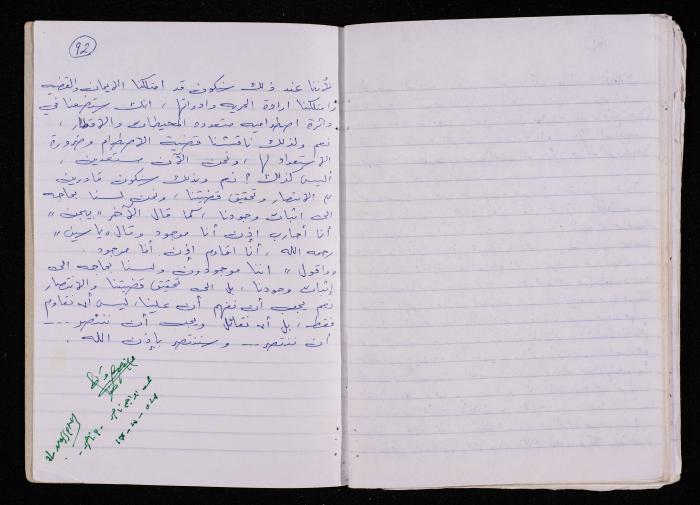 92
لأننا عند ذلك سنكون قد امتلكنا الايمان والقضيه
وامتلكنا ارادة الحريه وادواتها ، انك ستضعنا في
دائرة اصطداميه متعدده المحيطات والاقطار ،
نعم ولذلك ناقشنا قضية الاصطدام وضرورة
الاستعداد لها ، ونحن الآن مستعدين ،
أليس كذلك ؟ نعم وبذلك سنكون قادرين
الانتصار وتحقيق قضيتنا ، ونحن لسنا بحاجه
الى اثبات وجودنا ، كما قال الآخر "بيجن"
أنا أحارب إذن أنا موجود وقال "ياسين"
رحمه الله ، أنا اقاوم إذن أنا موجود
واقول " اننا موجودون ولسنا بحاجه الى
إثبات وجودنا ، بل الى تحقيق قضيتنا والانتصار
نعم يجب أن نفهم أن علينا ليس أن نقاوم
فقط ، بل أن نقاتل ويجب أن ننتصر ....
أن ننتصر ... وسننتصر بإذن الله .